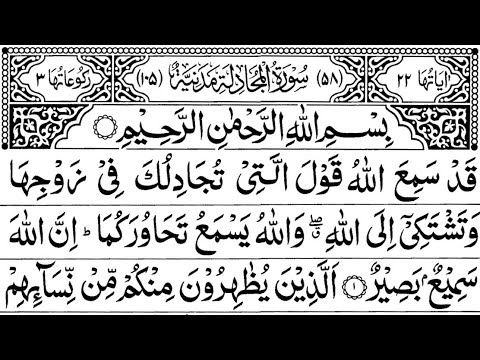 اٰيَاتُهَا ٢٢ (٥٨) سُوْرَةُ الْمُجَادِلَةِ مَدَنِيَّةٌ (١٠٥) رُكُوْعَاتُهَا ٣
بِسْمِ اللهِ الرَّحْمٰنِ الرَّحِيْمِ
قَدْ سَمِعَ اللهُ قَوْلَ الَّتِىْ تُجَادِلُكَ فِىْ زَوْجِهَا
وَتَشْتَكِىْٓ اِلَى اللهِ ۖ وَاللهُ يَسْمَعُ تَحَاوُرَكُمَا ؕ اِنَّ اللهَ
سَمِيْعٌۢ بَصِيْرٌ ۝١ اَلَّذِيْنَ يُظٰهِرُوْنَ مِنْكُمْ مِّنْ نِّسَآئِهِمْ